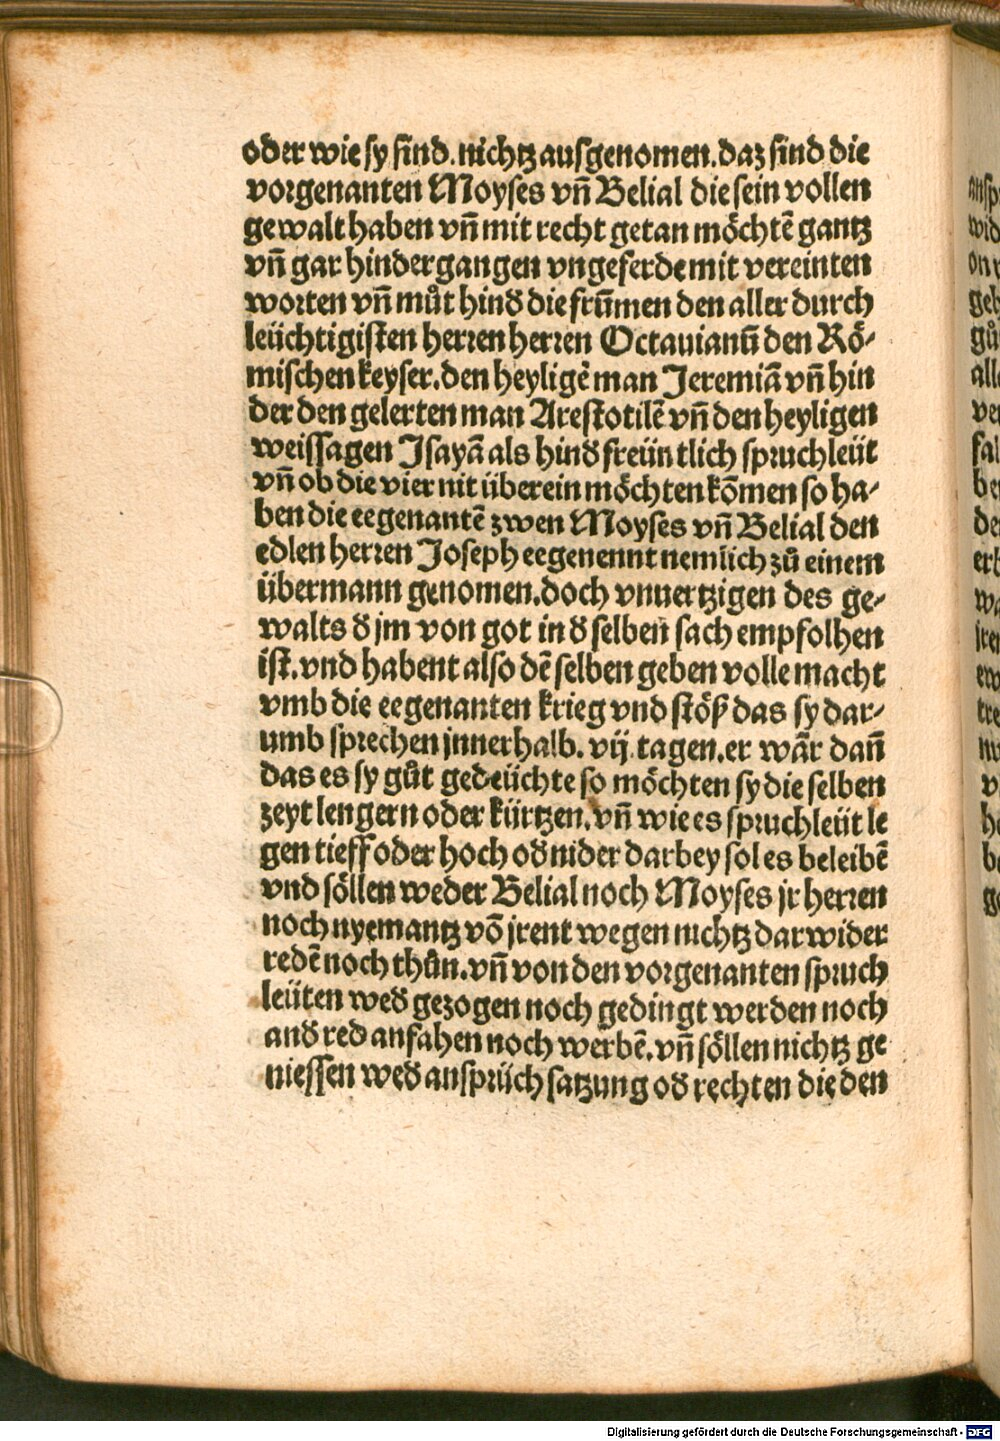 oder wie sy sind. nichtz ausgenomen. daz sind die
vorgenanten Moyses vn̄ Belial die sein vollen
gewalt haben vn̄ mit recht getan möchtē gantz
vn̄ gar hindergangen vngeferde mit vereinten
worten vn̄ můt hind die frūmen den aller durch
leüchtigisten herren herren Octauianū den Rö⸗
mischen keyser. den heyligē man Jeremiā vn̄ hin
der den gelerten man Arestotilē vn̄ den heyligen
weissagen Jsayā als hind freüntlich spruchleüt
vn̄ ob die vier nit überein möchten kōmen so ha⸗
ben die eegenantē zwen Moyses vn̄ Belial den
edlen herren Joseph eegenennt nemlich zů einem
übermann genomen. doch vnuertzigen des ge⸗
walts d jm von got in d selben sach empfolhen
ist. vnd habent also dē selben geben volle macht
vmb die eegenanten krieg vnd stöß das sy dar⸗
umb sprechen jnnerhalb. vij. tagen. er wār dañ
das es sy gůt gedeüchte so möchten sy die selben
zeyt lengern oder kürtzen. vn̄ wie es spruchleüt le
gen tieff oder hoch od nider darbey sol es beleibē
vnd söllen weder Belial noch Moyses jr herren
noch nyemantz vō jrent wegen nichtz darwider
redē noch thůn. vn̄ von den vorgenanten spruch
leüten wed gezogen noch gedingt werden noch
and red anfahen noch werbē. vn̄ söllen nichtz ge
niessen wed ansprüch satzung od rechten die den
Digitalisierung gefördert durch die Deutsche Forschungsgemeinschaft - DFG